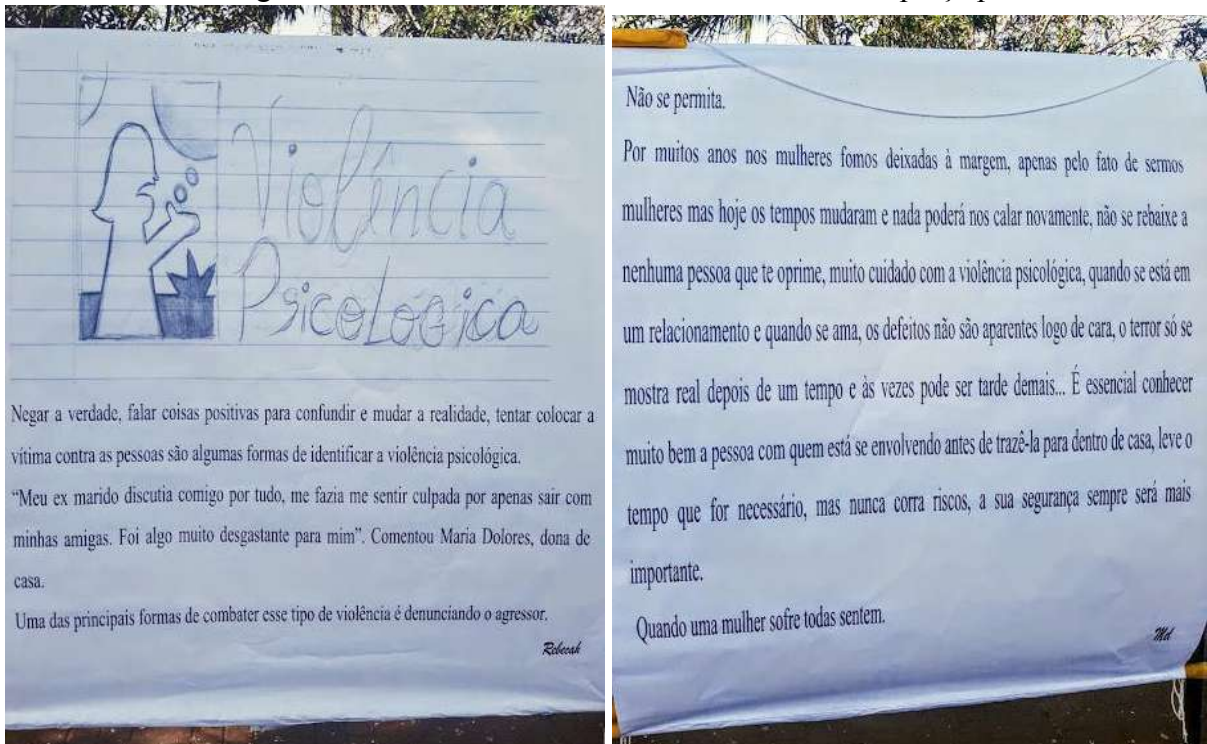 Violência
Psicológica
Negar a verdade, falar coisas positivas para confundir e mudar a realidade, tentar colocar a
vítima contra as pessoas são algumas formas de identificar a violência psicológica.
“Meu ex marido discutia comigo por tudo, me fazia me sentir culpada por apenas sair com
minhas amigas. Foi algo muito desgastante para mim”. Comentou Maria Dolores, dona de
casa.
Uma das principais formas de combater esse tipo de violência é denunciando o agressor.
Rebecah
Não se permita.
Por muitos anos nos mulheres fomos deixadas à margem, apenas pelo fato de sermos
mulheres mas hoje os tempos mudaram e nada poderá nos calar novamente, não se rebaixe a
nenhuma pessoa que te oprime, muito cuidado com a violência psicológica, quando se está em
um relacionamento e quando se ama, os defeitos não são aparentes logo de cara, o terror só se
mostra real depois de um tempo e às vezes pode ser tarde demais... É essencial conhecer
muito bem a pessoa com quem está se envolvendo antes de trazê-la para dentro de casa, leve o
tempo que for necessário, mas nunca corra riscos, a sua segurança sempre será mais
importante.
Quando uma mulher sofre todas sentem.